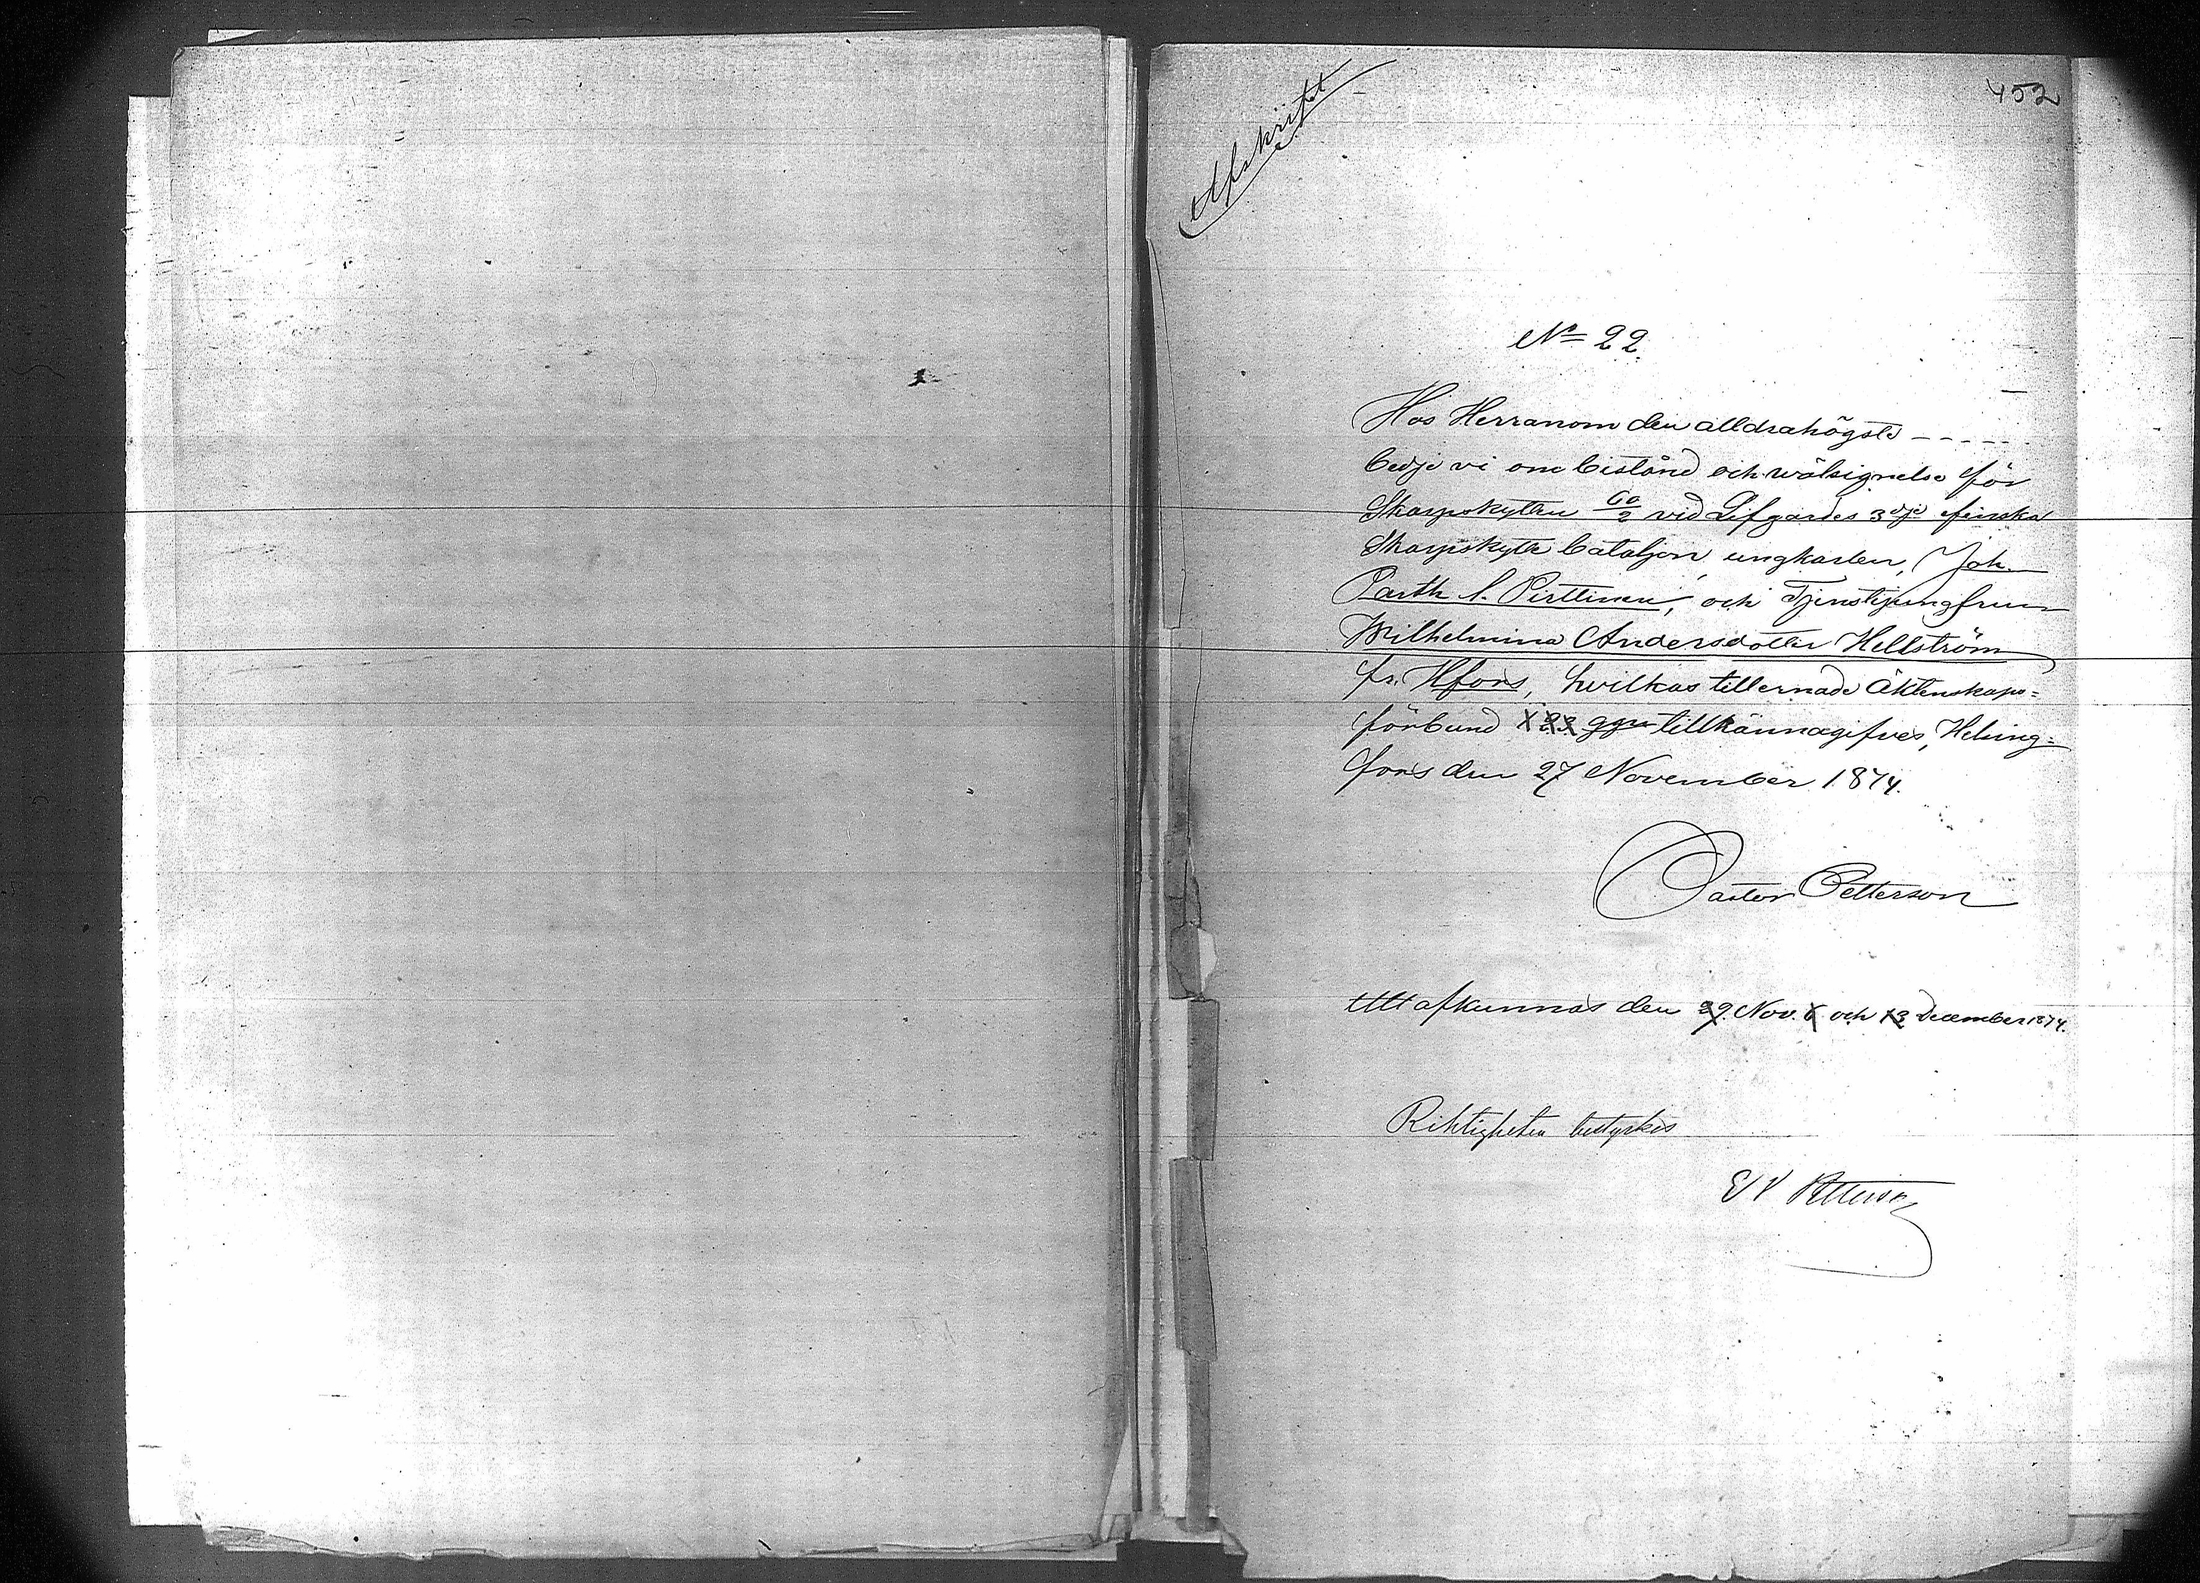 452
Afskrift
No 22.
Hos Herranom den alldrahögste - - - - -
bedje vi om bistånd och wälsignelse för
Skarpskytten 60/2 vid Lifgardes 3dje finska
Skarpskytte bataljon, ungkarlen, Joh.
Parth. S. Pirttinen, och Tjenstejungfrun
Wilhelmina Andersdotter Hellström
fr. Hfors, hvilkas tillernade Äktenskaps=
förbund ggn tillkännagifves, Helsing=
fors den 27 November 1874.
Pastor Petterson
Utt afkunnas den 29. Nov. 6 och 13 December 1874.
Riktigheten bestyrkes
Petterson